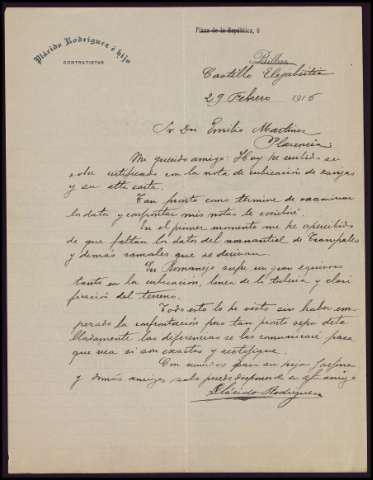 Plácido Rodriguez é hijo
CONTRATISTAS
Plaza de la República, 6
Bilbao
Castillo Elejabeitia
29 Febrero 1916
Sr Dn Emilio Martinez
Plasencia
Mi querido amigo: Hoy he recibido su
certificado con la nota de cubicación de zanjas
y su atta carta.
Tan pronto como termine de examinar
los datos y confrontar mis notas le escribiré.
En el primer momento me he apercibido
de que faltan los datos del manantial de
y demás ramales que se derivan.
Su Romanejo sufre un gran equivoco
tanto en la cubicacion, linea de la tuberia y clasi
ficacion del terreno.
Todo esto lo he visto sin haber em
pezado la confrontación pero tan pronto sepa deta
lladamente las diferencias se las comunicaré para
que vea si son exactas y rectifique.
Con recuerdos para su hija Josefina
y demás amigos sabe puede disponer de su afmo amigo
Plácido Rodriguez